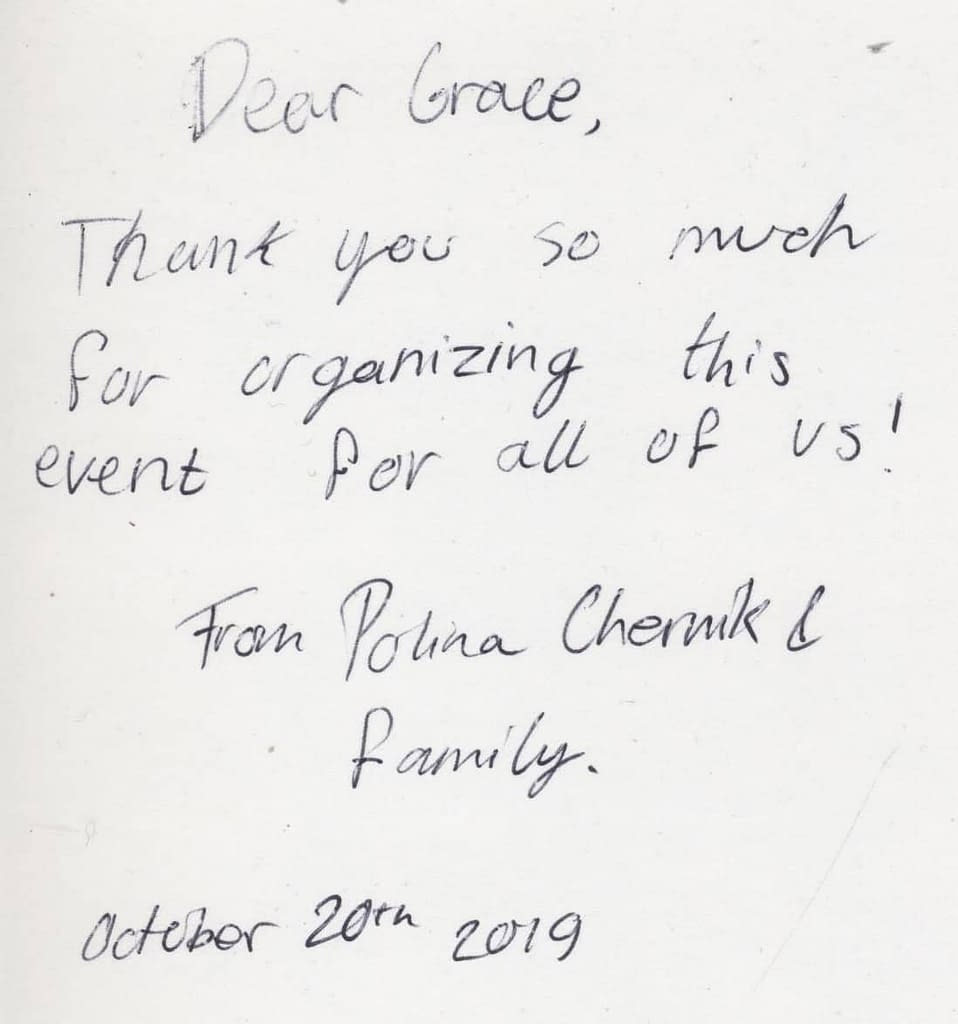 Dear Grace,
Thank you so much
for organizing this
event for all of us!
From Polina Chernik &
family.
October 20th 2019